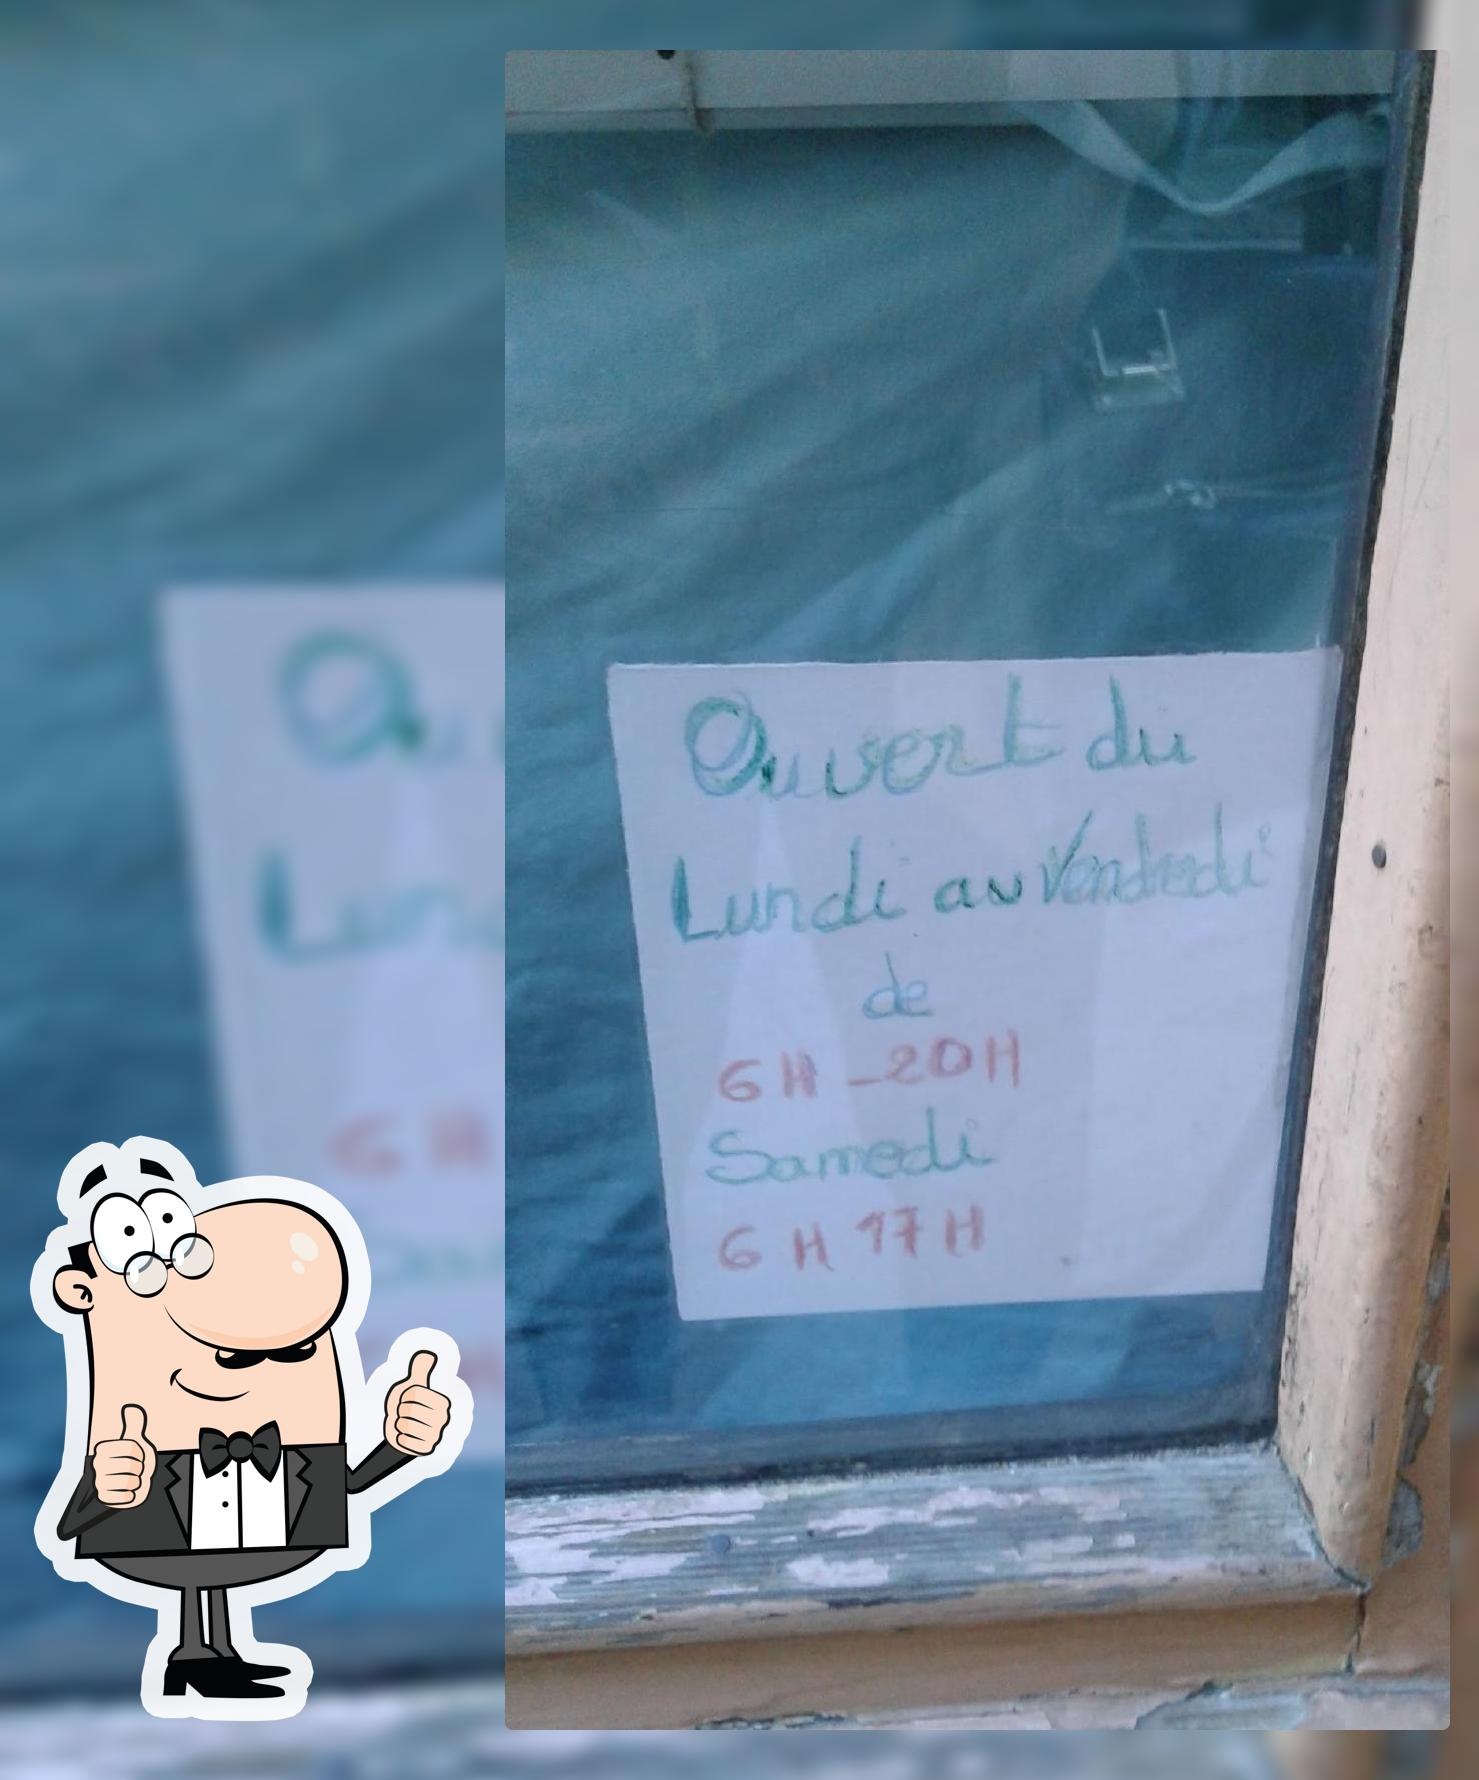 Ouvert du
Lundi au Vendredi
de
6H_20H
Samedi
6H 17H